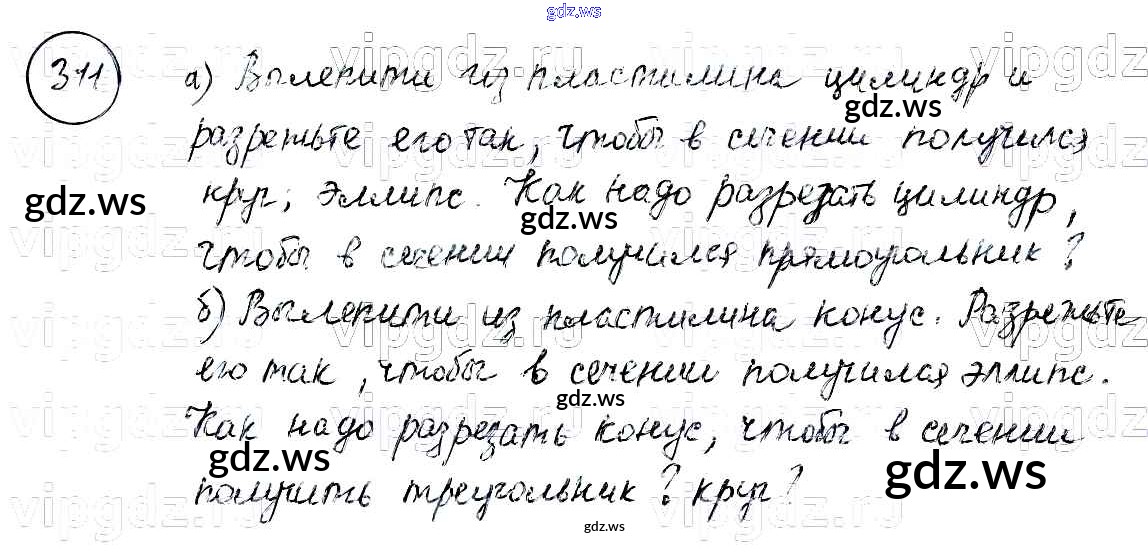 gdz.ws
311 а) Вылепити из пластилина цилиндр и
gdz.ws
разрежьте его так, чтобы в сечении получился
gdz.ws
круг; эллипс. Как надо разрезать цилиндр,
gdz.ws
чтобы в сечении получился прямоугольник?
б) Вылепити из пластилина конус. Разрежьте
его так, чтобы в сечении получился эллипс.
gdz.ws
Как надо разрезать конус, чтобы в сечении
gdz.ws
gdz.ws
получить треугольник? круг?
gdz.ws